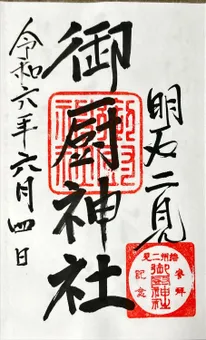 明石二見
御厨神社
令和六年六月四日
播州二見
参拜
御厨神社
記念